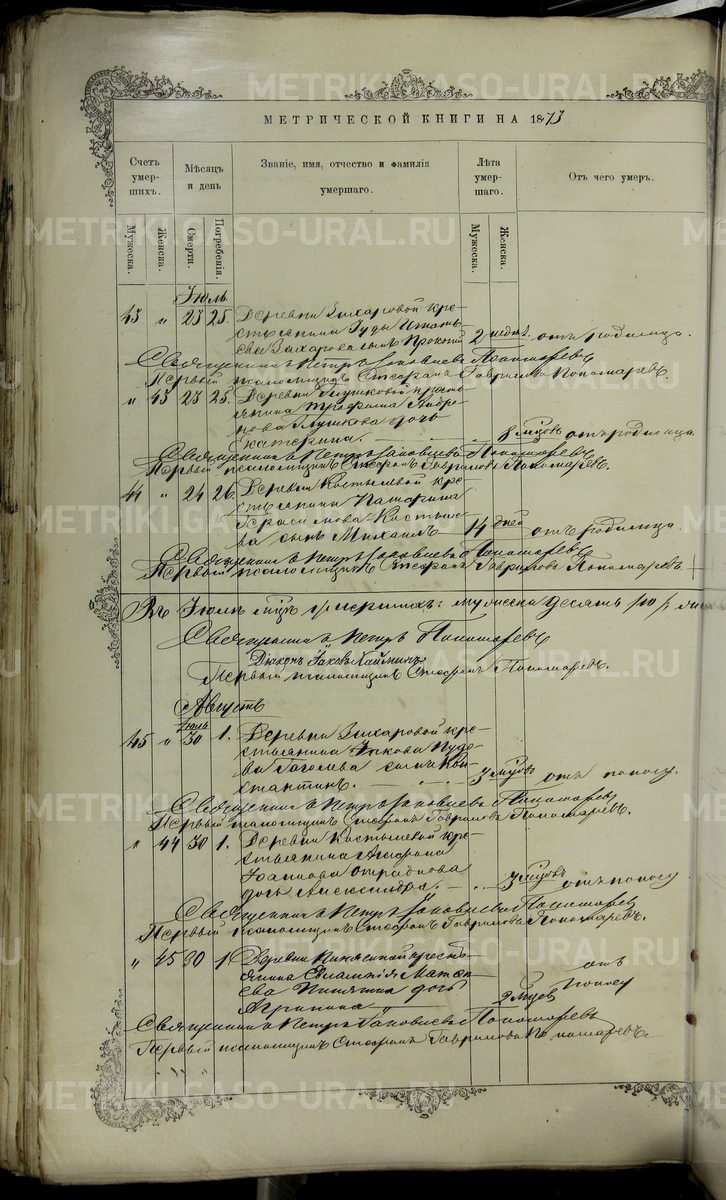 МЕТРИЧЕСКОЙ КНИГИ НА 1873
Счетъ умер- шихъ.
Мѣсяцъ и день
Званіе, имя, отчество и фамилія умершаго.
Лѣта умер- шаго.
Отъ чего умеръ.
Мужеска.
Женска.
Смерти.
Погребенія.
Мужеска.
Женска.
Іюль
43 " 23 25. Деревни Захаровой кре-
стьянина Іуды Игнать-
ева Захарова сынъ Прокопій 2 недѣл. отъ родимца.
Священникъ Петръ Іаковлевъ Пономаревъ
Первый псаломщикъ Стефанъ Гавриловъ Пономаревъ.
" 43 23 25. Деревни Глушковой кресть-
янина Трофима
Глушкова дочь
Екатерина. 8 мѣцовъ отъ родимца.
Священникъ Петръ Іаковлевъ Пономаревъ
Первый псаломщикъ Стефанъ Гавриловъ Пономаревъ.
44 " 24 26. Деревни Костылевой кре-
стьянина
Герасимова Косты-
ва сынъ Михаилъ 14 дней отъ родимца.
Священникъ Петръ Іаковлевъ Пономаревъ
Первый псаломщикъ Стефанъ Гавриловъ Пономаревъ
Въ Іюлѣ мцѣ умершихъ: мужеска десять /10/
Священникъ Петръ Пономаревъ
Діаконъ Іаковъ
Первый псаломщикъ Стефанъ Пономаревъ.
Августъ
Іюль
45 " 30 1. Деревни Захаровой кре-
стьянина Іакова
ва Гоголева сынъ Кон-
стантинъ. мѣцовъ отъ поносу.
Священникъ Петръ Іаковлевъ Пономаревъ
Первый псаломщикъ Стефанъ Гавриловъ Пономаревъ.
" 44 30 1. Деревни Костылевой кре-
стьянина
Іоаннова Отраднова
дочь Александра. мѣцовъ отъ поносу
Священникъ Петръ Іаковлевъ Пономаревъ
Первый псаломщикъ Стефанъ Гавриловъ Пономаревъ.
" 45 30 1 Деревни кресть-
янина Евлампія Матѳе-
ева дочь
Агрипина 2 мѣцев отъ поносу
Священникъ Петръ Іаковлевъ Пономаревъ
Первый псаломщикъ Стефанъ Гавриловъ Пономаревъ.
METRIKI.GASO-URAL.RU